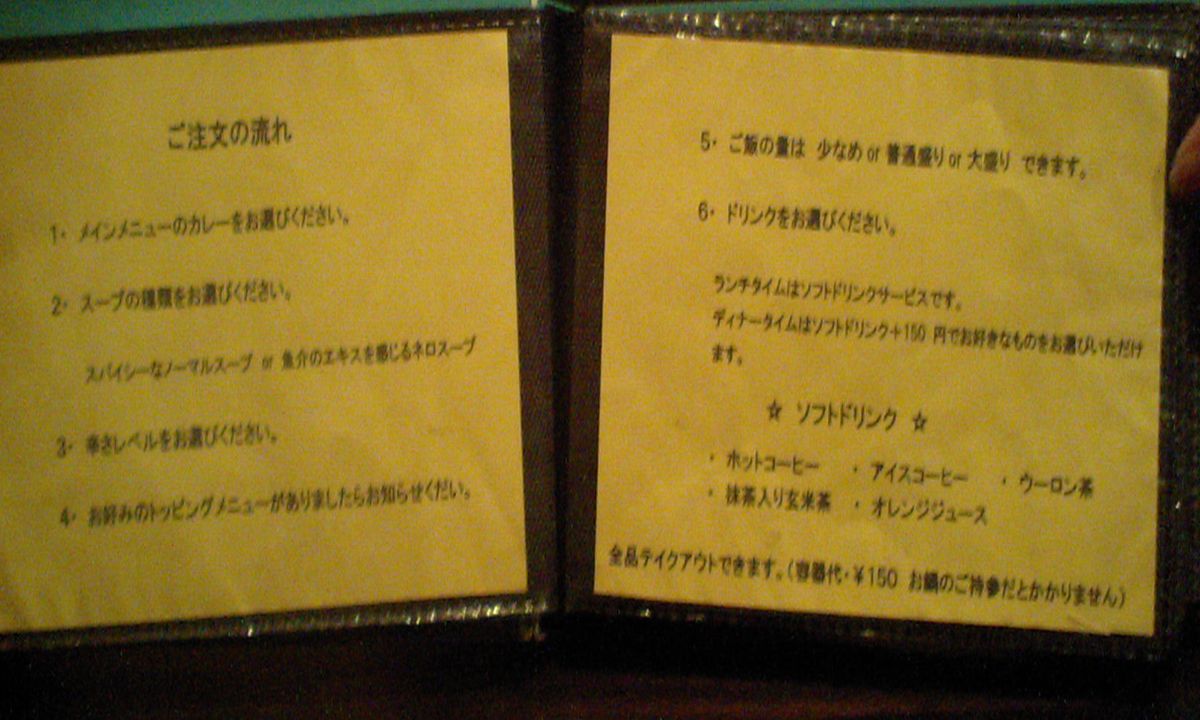 ご注文の流れ
1・ メインメニューのカレーをお選びください。
2・ スープの種類をお選びください。
スパイシーなノーマルスープ or 魚介のエキスを感じるネロスープ
3・ 辛さレベルをお選びください。
4・ お好みのトッピングメニューがありましたらお知らせくだい。
5・ ご飯の量は 少なめ or 普通盛り or 大盛り できます。
6・ ドリンクをお選びください。
ランチタイムはソフトドリンクサービスです。
ディナータイムはソフトドリンク+150 円でお好きなものをお選びいただけ
ます。
☆ ソフトドリンク ☆
・ ホットコーヒー ・ アイスコーヒー ・ ウーロン茶
・ 抹茶入り玄米茶 ・ オレンジジュース
全品テイクアウトできます。(容器代・¥150 お鍋のご持参だとかかりません)